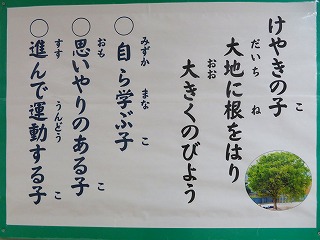 けやきの子
大地に根をはり
大きくのびよう
○自ら学ぶ子
○思いやりのある子
○進んで運動する子